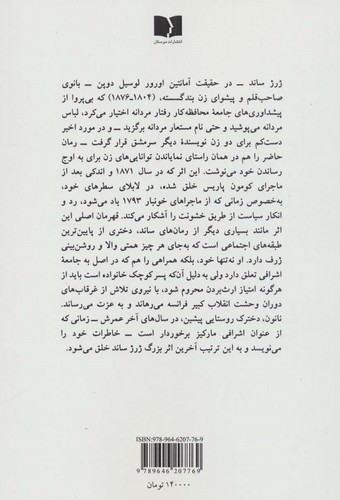 انتشارات دبستان
ژرژ ساند ــ در حقیقت آمانتین اورور لوسیل دوپن ــ بانوی
صاحب‌قلم و پیشوای زن بندگسسته، (۱۸۰۴-۱۸۷۶) که بی‌پروا از
پیشداوری‌های جامعهٔ محافظه‌کار رفتار مردانه اختیار می‌کرد، لباس
مردانه می‌پوشید و حتی نام مستعار مردانه برگزید ــ و در مورد اخیر
دست‌کم برای دو زن نویسندهٔ دیگر سرمشق قرار گرفت ــ رمان
حاضر را هم در همان راستای نمایاندن توانایی‌های زن برای به اوج
رساندن خود می‌نوشت. این اثر که در سال ۱۸۷۱ و اندکی بعد از
ماجرای کومون پاریس خلق شده، در لابلای سطرهای خود،
به‌خصوص زمانی که از ماجراهای خونبار ۱۷۹۳ یاد می‌شود، رد و
انکار سیاست از طریق خشونت را آشکار می‌کند. قهرمان اصلی این
اثر مانند بسیاری دیگر از رمان‌های ساند، دختری از پایین‌ترین
طبقه‌های اجتماعی است که به‌جای هر چیز همتی والا و روشن‌بینی
ژرف دارد. او نه‌تنها خود، بلکه همراهی را هم که در اصل به جامعهٔ
اشرافی تعلق دارد ولی به دلیل آن‌که پسر کوچک خانواده است باید از
هرگونه امتیاز ارث‌بردن محروم شود، با نیروی تلاش از غرقاب‌های
دوران وحشت انقلاب کبیر فرانسه می‌رهاند و به عزت می‌رساند.
نانون، دخترک روستایی پیشین، در سال‌های آخر عمرش ــ زمانی که
از عنوان اشرافی مارکیز برخوردار است ــ خاطرات خود را
می‌نویسد و به این ترتیب آخرین اثر بزرگ ژرژ ساند خلق می‌شود.
ISBN: 978-964-6207-76-9
9 789646 207769
۱۴۰۰۰۰ تومان